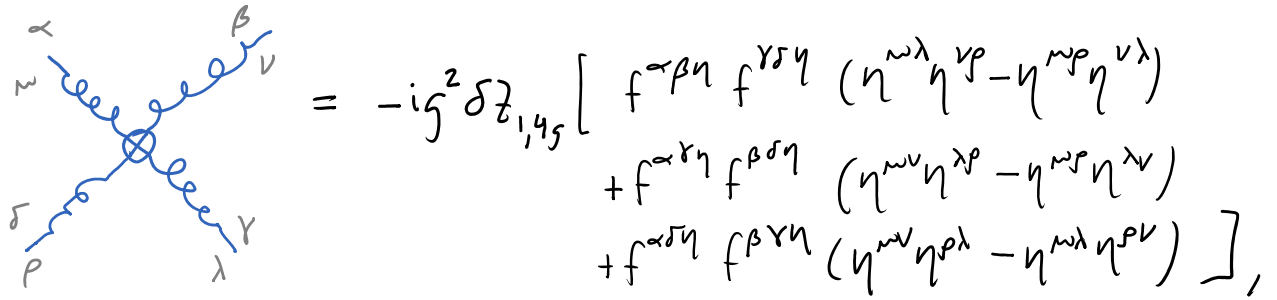 α β
μ ν
= -ig² δZ_{1,4g} [ f^{αβη} f^{γδη} (η^{μλ}η^{νρ} - η^{μρ}η^{νλ})
+ f^{αγη} f^{βδη} (η^{μν}η^{λρ} - η^{μρ}η^{λν})
+ f^{αδη} f^{βγη} (η^{μν}η^{ρλ} - η^{μλ}η^{ρν}) ],
δ γ
ρ λ